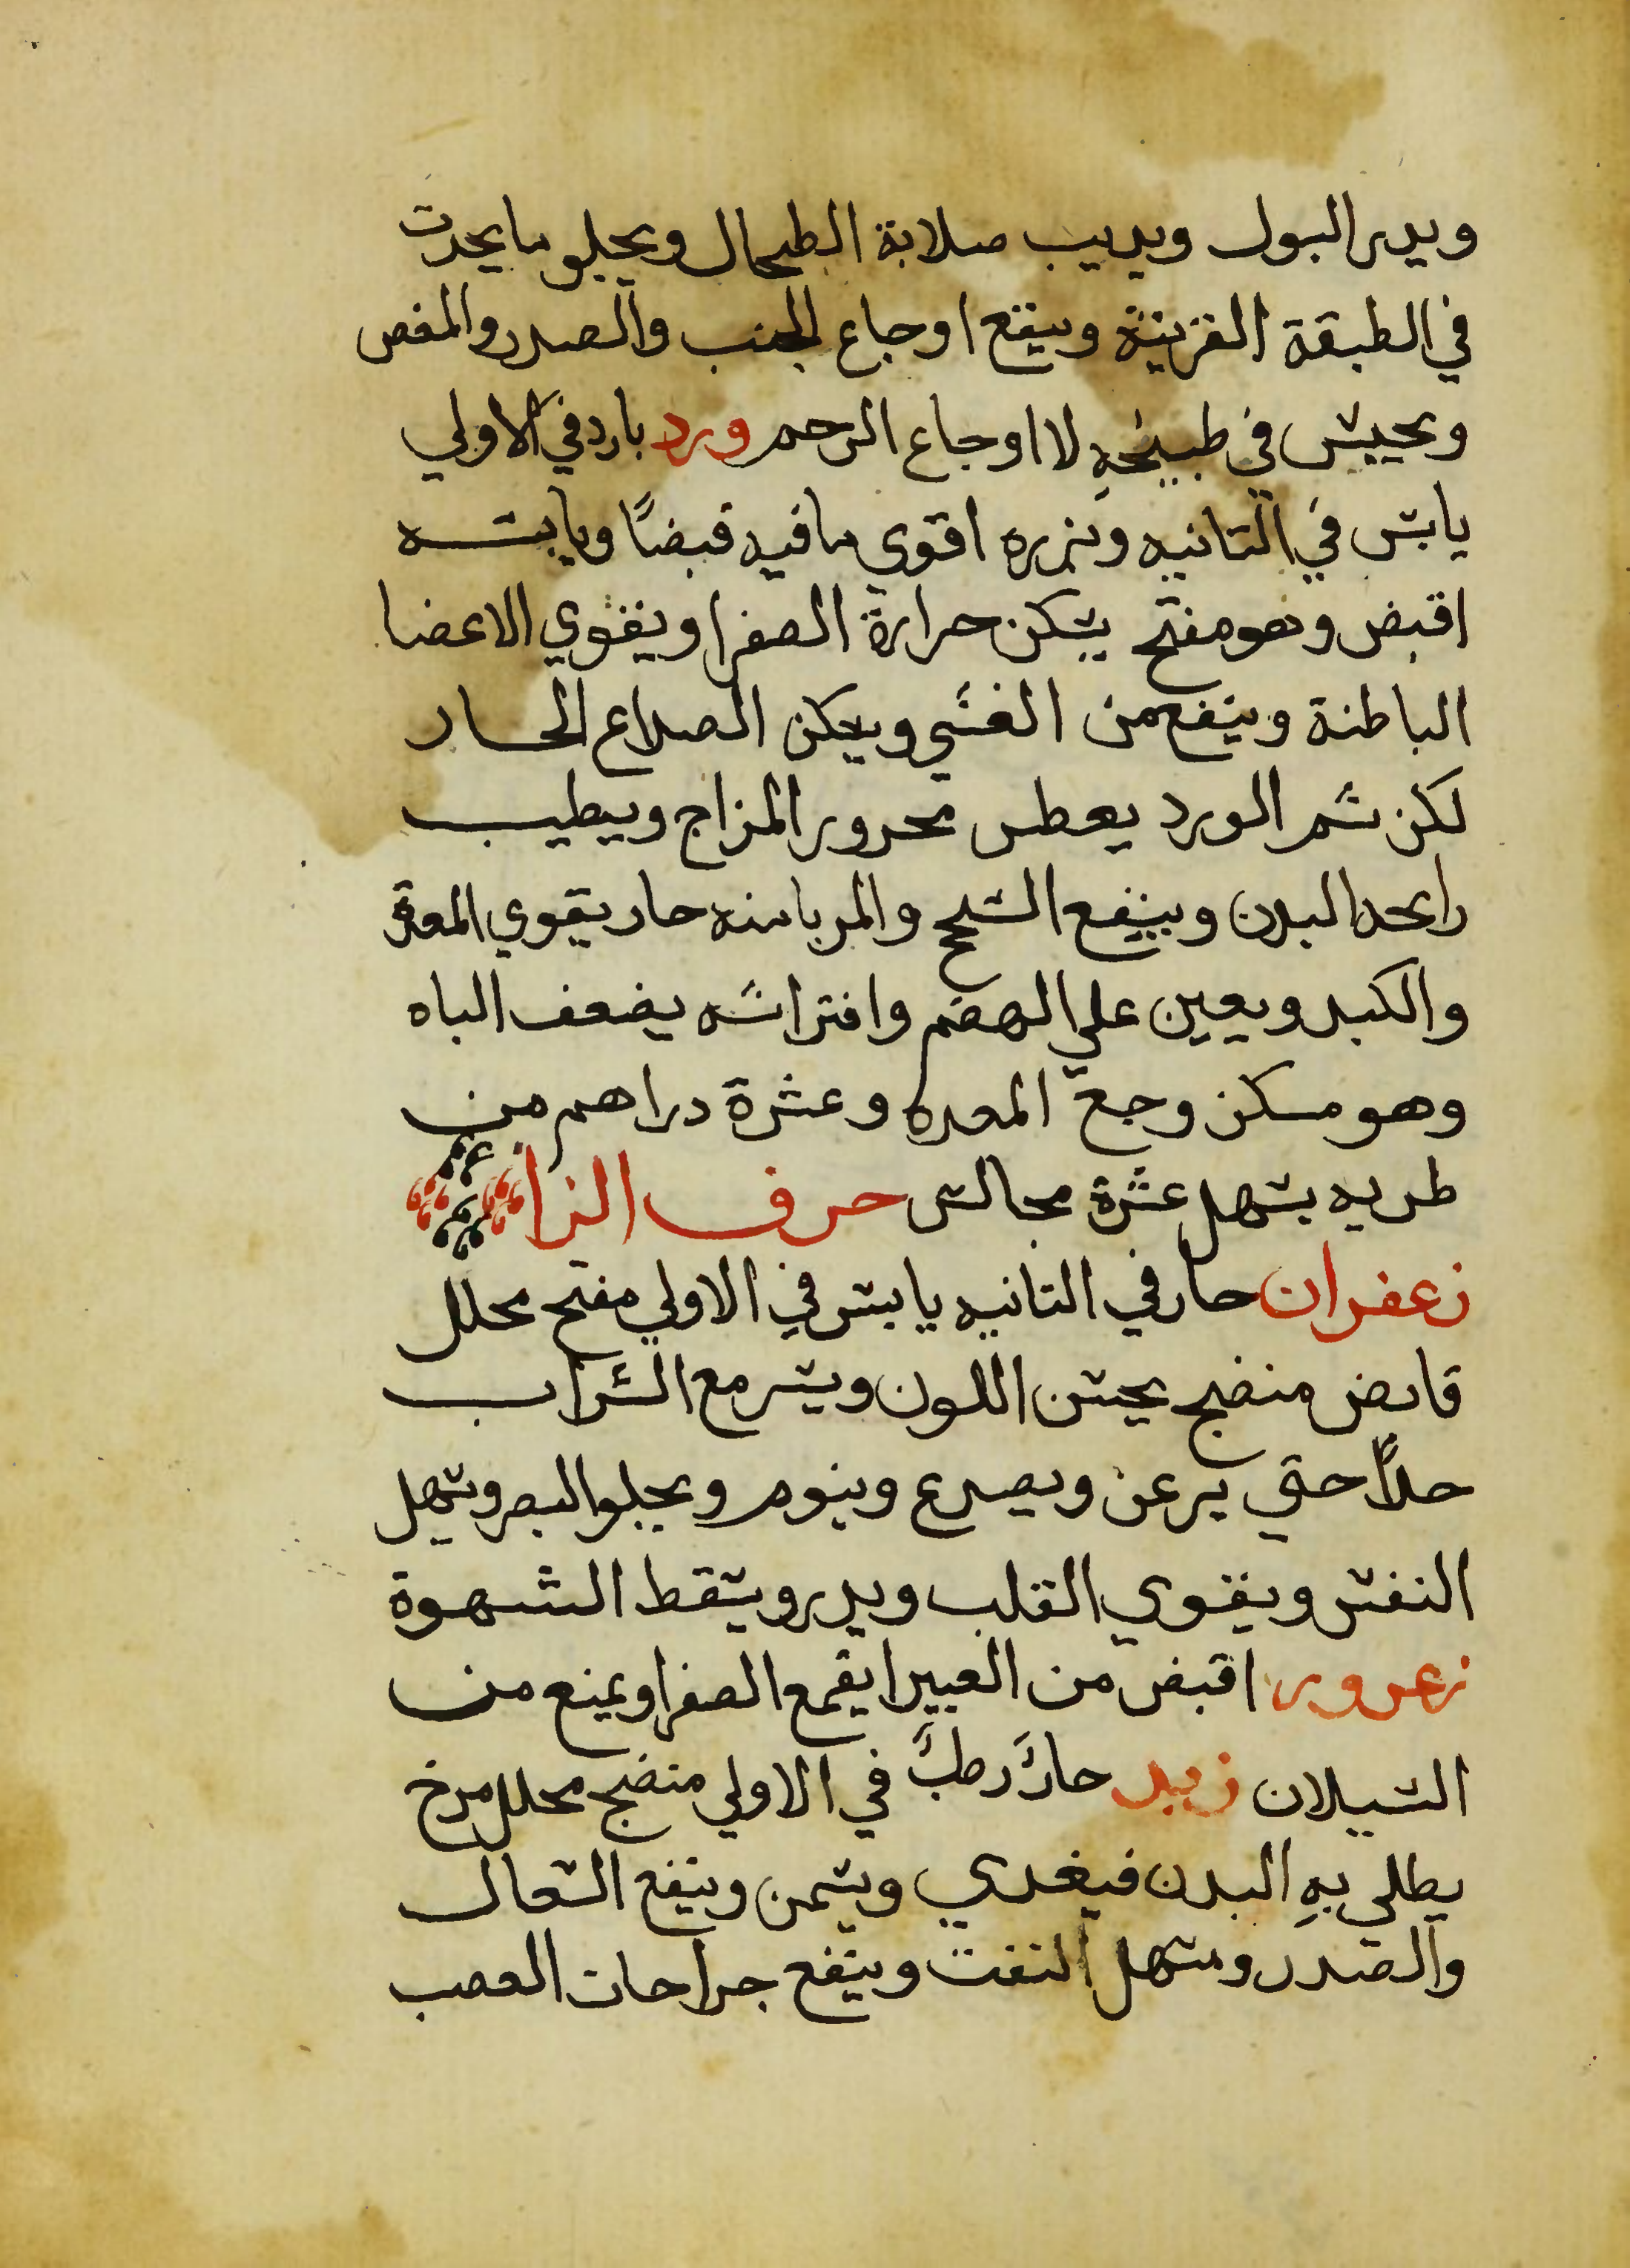 ويدر البول ويديب صلابة الطحال ويجلو ما يحدت
في الطبقة القرنيّة وينفع اوجاع الجنب والصدر والمغص
ويجيس في طبيخهِ لا اوجاع الرحم ورد بارد في الاولي
يابس في التانيه وبزره اقوي ما فيه قبضًا ويابسه
اقبض وهو مفتح يسكن حرارة الصفرا ويقوي الاعضا
الباطنة وينفع من الغشي ويسكن الصداع الحار
لكن شم الورد يعطس محرور المزاج ويطيب
رايحه البدن وينفع السحج والمربا منه حار يقوي المعدة
والكبد ويعين علي الهضم وافتراشه يضعف الباه
وهو مسكن وجع المعده وعشرة دراهم من
طريه يسهل عشرة مجالس حرف الزا
زعفران حار في التانيه يابس في الاولي مفتح محلل
قابض منضج يحسن اللون ويسر مع الشراب
حدًا حتي يرعن ويصدع وينوم ويجلو البصر ويسهل
النفس ويقوي القلب ويدر ويسقط الشهوة
زعرور اقبض من الغبيرا يقمع الصفرا ويمنع من
السيلان زبد حارٌ رطبٌ في الاولي منضج محلل مرخ
يطلي بهِ البدن فيغدي ويسمن وينفع السعال
والصدر ويسهل النفت وينفع جراحات العصب